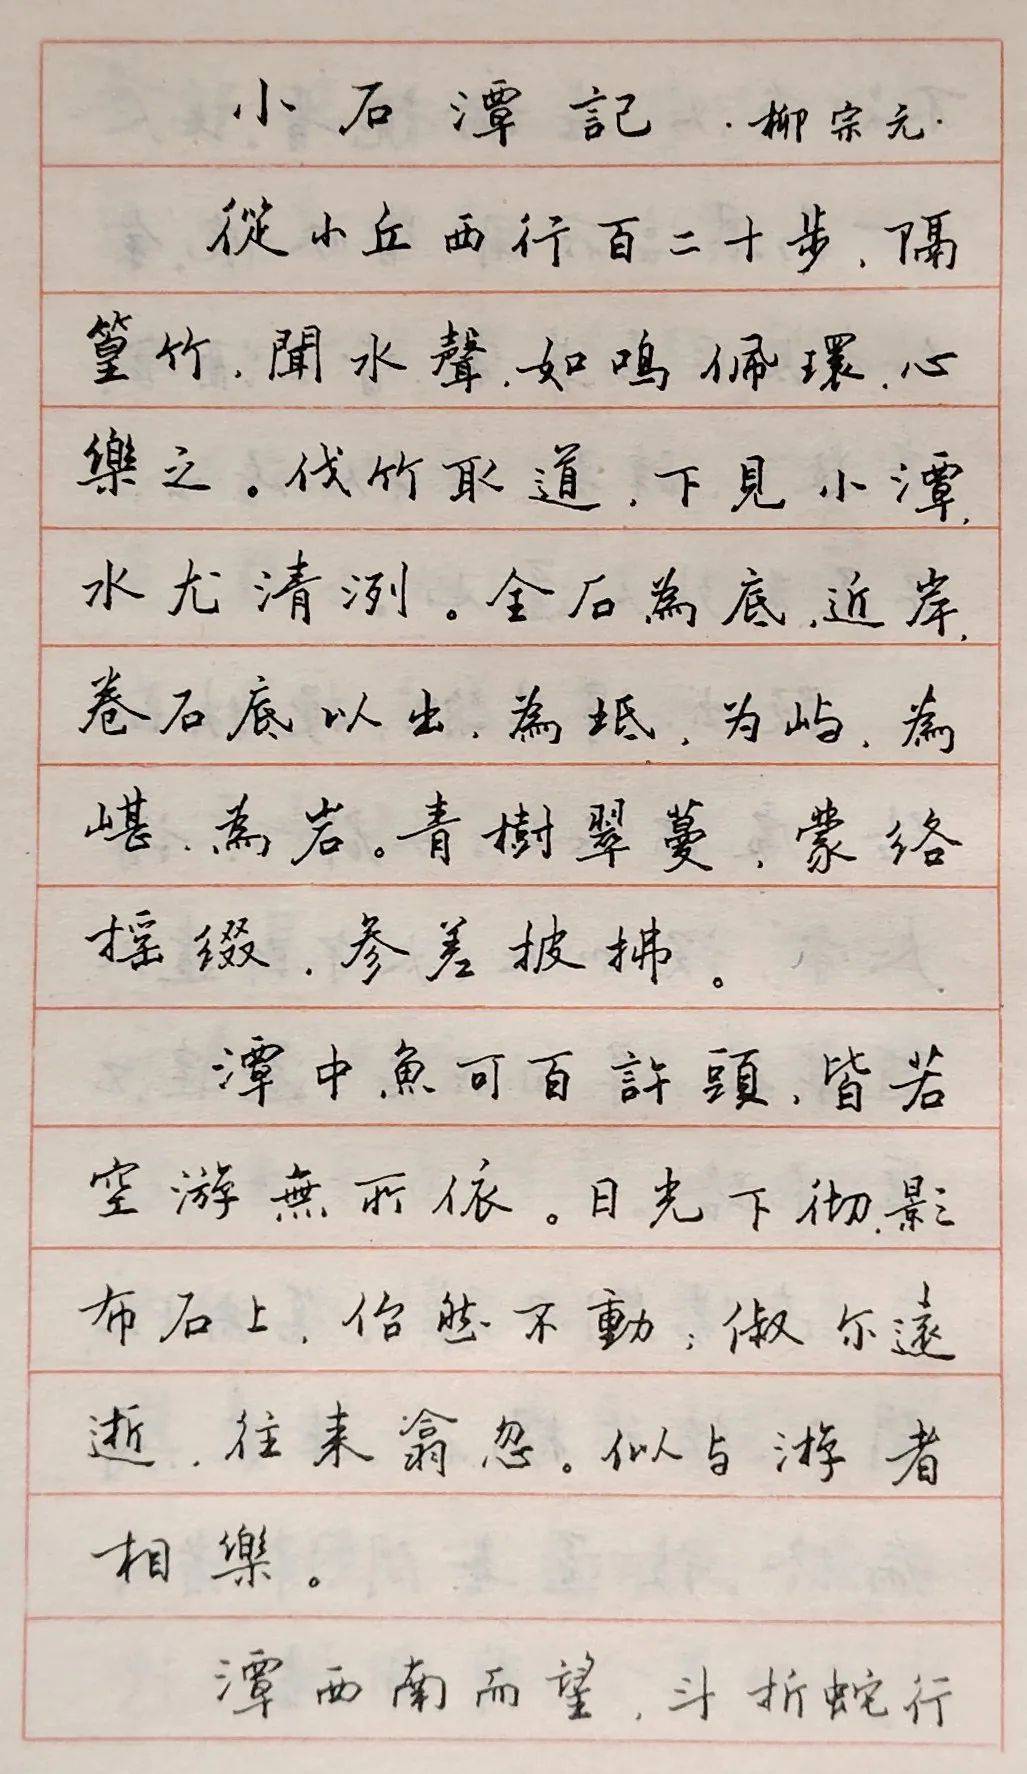 小石潭記 ·柳宗元·
從小丘西行百二十步,隔
篁竹,聞水聲,如鳴佩環,心
樂之。伐竹取道,下見小潭,
水尤清洌。全石為底,近岸,
卷石底以出,為坻,为屿,為
嵁,為岩。青樹翠蔓,蒙络
摇缀,参差披拂。
潭中魚可百許頭,皆若
空游無所依。日光下彻,影
布石上,佁然不動;俶尔遠
逝,往来翕忽。似与游者
相樂。
潭西南而望,斗折蛇行